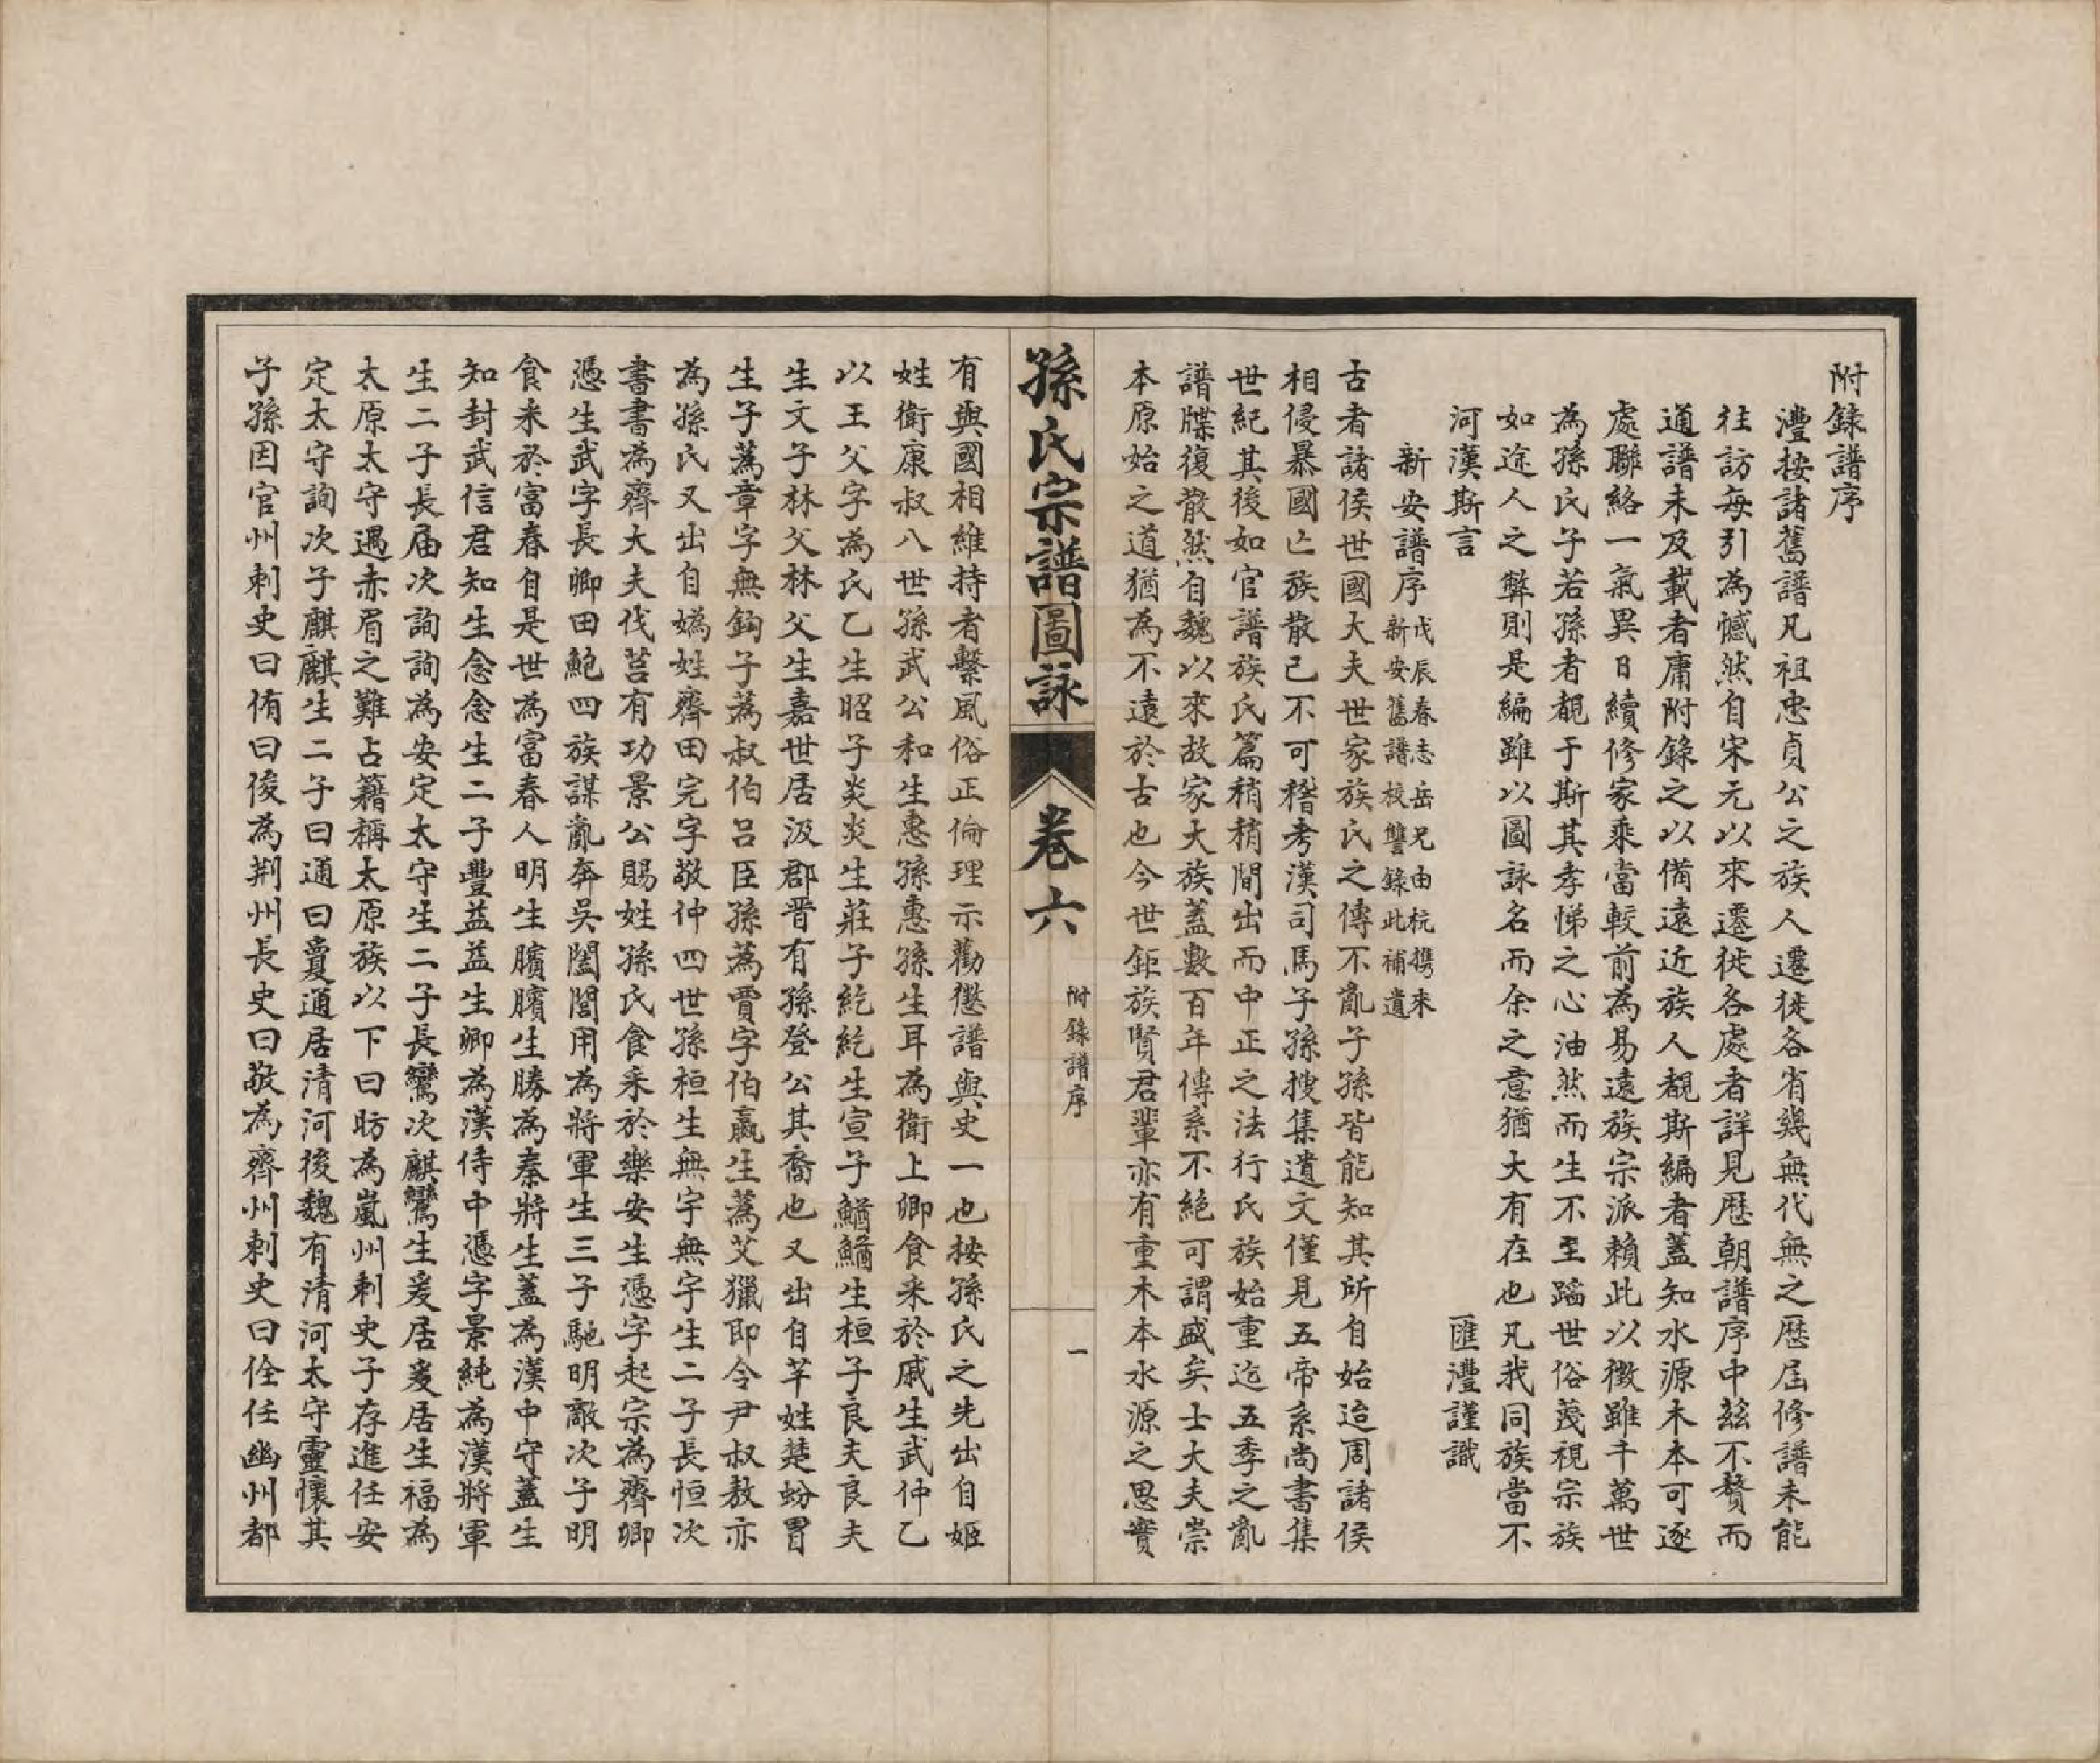 附錄譜序
灃按諸舊譜凡祖忠貞公之族人遷徙各省幾無代無之歷屆修譜未能
往訪每引為憾然自宋元以來遷徙各處者詳見歷朝譜序中茲不贅而
通譜未及載者庸附錄之以備遠近族人覩斯編者蓋知水源木本可逐
處聯絡一氣異日續修家乘當較前為易遠族宗派賴此以徵雖千萬世
為孫氏子若孫者覩于斯其孝悌之心油然而生不至蹈世俗蔑視宗族
如途人之弊則是編雖以圖詠名而余之意猶大有在也凡我同族當不
河漢斯言　匯灃謹識
新安譜序戊辰春志岳兄由杭攜來
新安舊譜校讐錄此補遺
古者諸侯世國大夫世家族氏之傳不亂子孫皆能知其所自始迨周諸侯
相侵暴國亡族散已不可稽考漢司馬子孫搜集遺文僅見五帝系尚書集
世紀其後如官譜族氏篇稍稍間出而中正之法行氏族始重迄五季之亂
譜牒復散然自魏以來故家大族蓋數百年傳系不絕可謂盛矣士大夫崇
本原始之道猶為不遠於古也今世鉅族賢君輩亦有重木本水源之思實
孫氏宗譜圖詠　卷六　附錄譜序　一
有與國相維持者繫風俗正倫理示勸懲譜與史一也按孫氏之先出自姬
姓衛康叔八世孫武公和生惠孫惠孫生耳為衛上卿食釆於戚生武仲乙
以王父字為氏乙生昭子炎炎生莊子紇紇生宣子鰌鰌生桓子良夫良夫
生文子林父林父生嘉世居汲郡晋有孫登公其裔也又出自芊姓楚蚡冒
生子蒍章字無鉤子蒍叔伯呂臣孫蒍賈字伯嬴生蒍艾獵即令尹叔敖亦
為孫氏又出自媯姓齊田完字敬仲四世孫桓生無宇無宇生二子長恒次
書書為齊大夫伐莒有功景公賜姓孫氏食釆於樂安生憑字起宗為齊卿
憑生武字長卿田鮑四族謀亂奔吳闔閭用為將軍生三子馳明敵次子明
食釆於富春自是世為富春人明生臏臏生勝為秦將生蓋為漢中守蓋生
知封武信君知生念念生二子豐益益生卿為漢侍中憑字景純為漢將軍
生二子長届次詢詢為安定太守生二子長鸞次麒鸞生爰居爰居生福為
太原太守遇赤眉之難占籍稱太原族以下曰昉為嵐州刺史子存進任安
定太守詢次子麒麒生二子曰通曰夐通居清河後魏有清河太守靈懷其
子孫因官州刺史曰侑曰俊為荆州長史曰敬為齊州刺史曰佺任幽州都